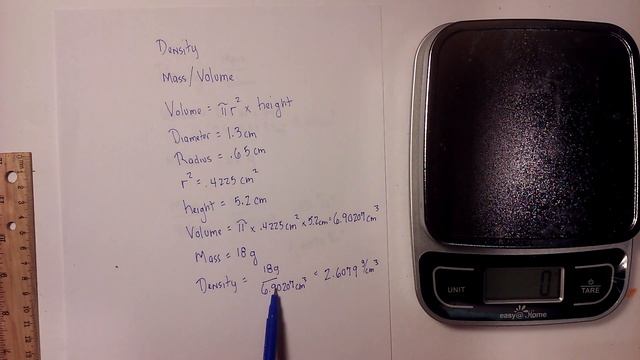 Density
Mass/Volume
Volume = πr² × height
Diameter = 1.3 cm
Radius = .65 cm
r² = .4225 cm²
height = 5.2 cm
Volume = π × .4225 cm² × 5.2 cm = 6.90207 cm³
Mass = 18 g
Density = 18g / 6.90207 cm³ = 2.6079 g/cm³
0
UNIT
TARE
easy@Home